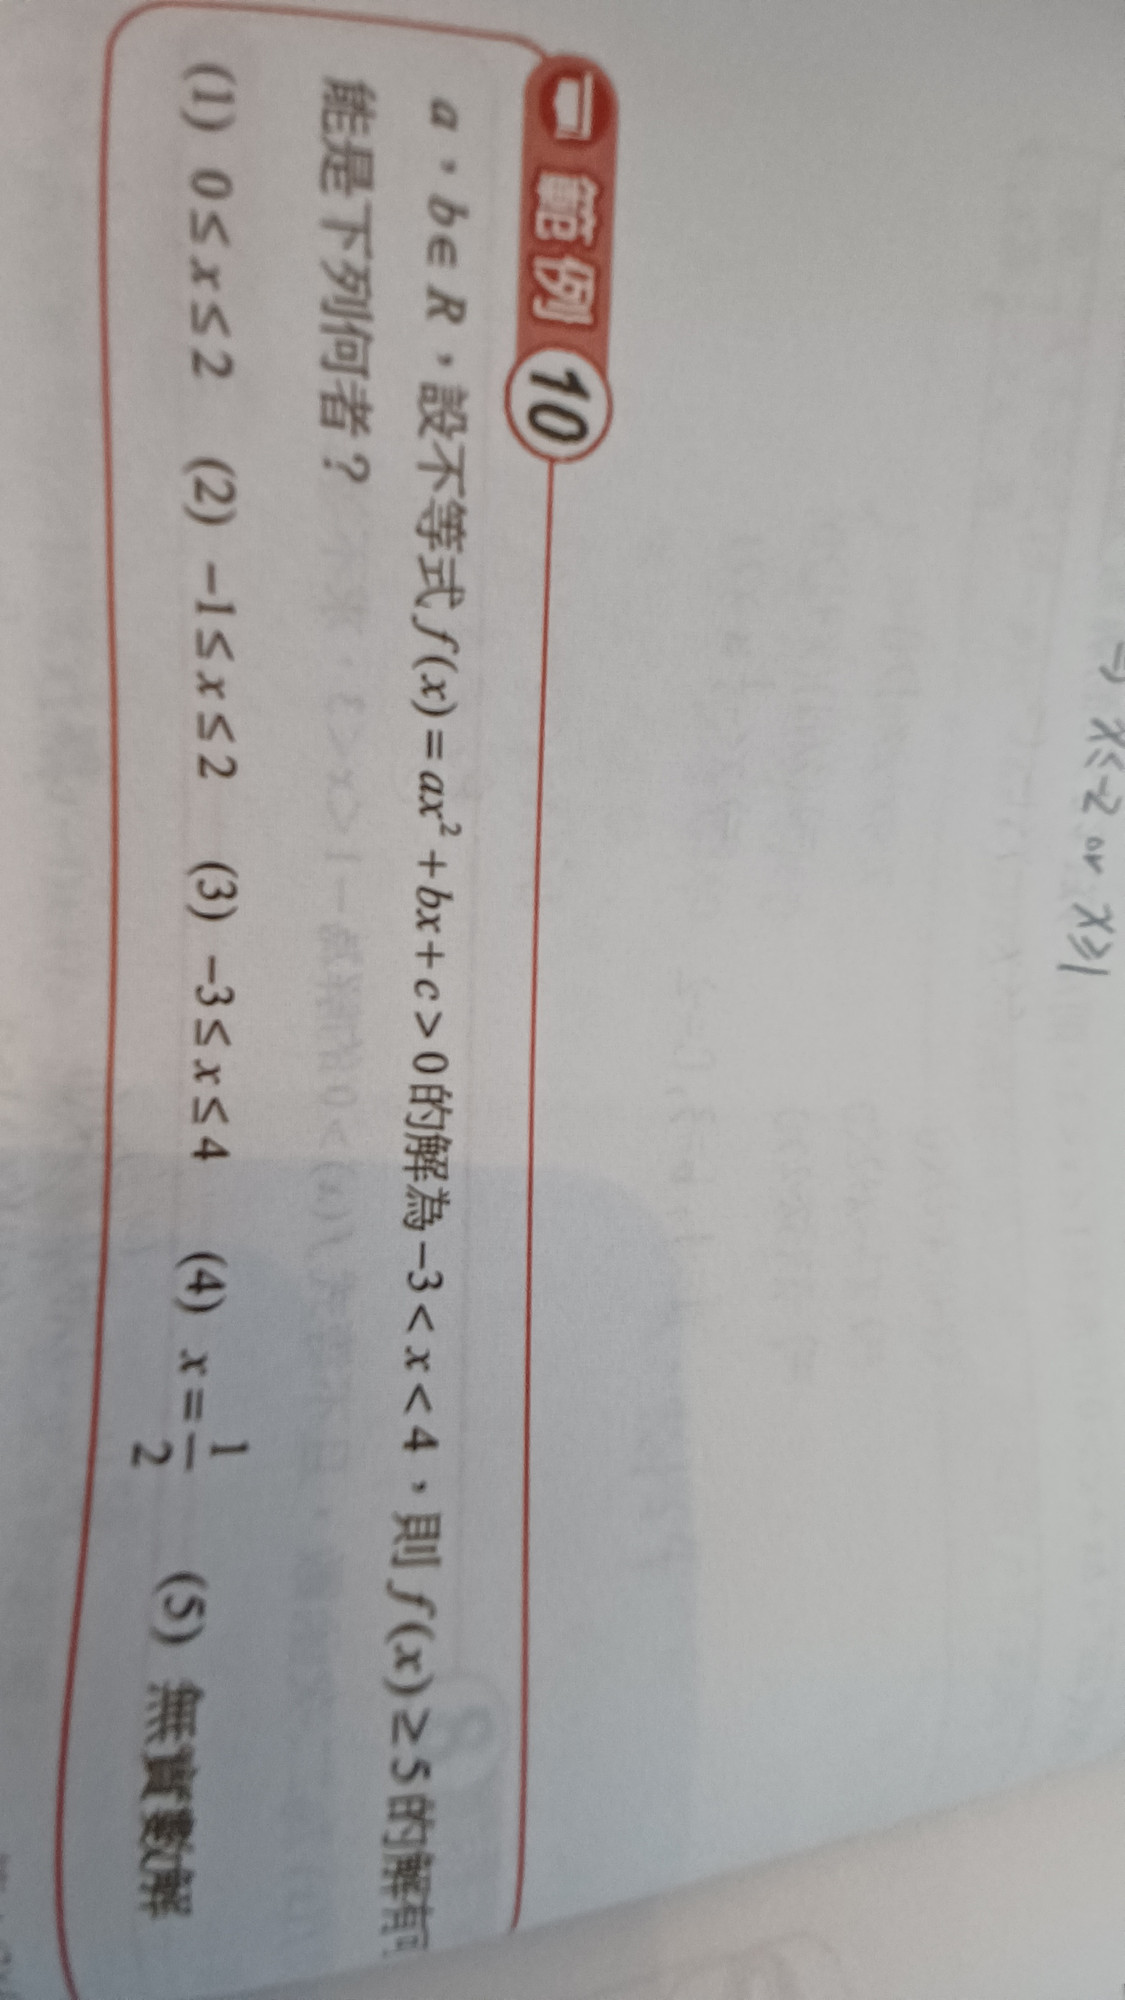 ⇒ x≤-2 or x≥1
範例 10
a，b∈R，設不等式 f(x)=ax²+bx+c>0的解為-3<x<4，則 f(x)≥5的解有可
能是下列何者？
(1) 0≤x≤2 (2) -1≤x≤2 (3) -3≤x≤4 (4) x=1/2 (5) 無實數解